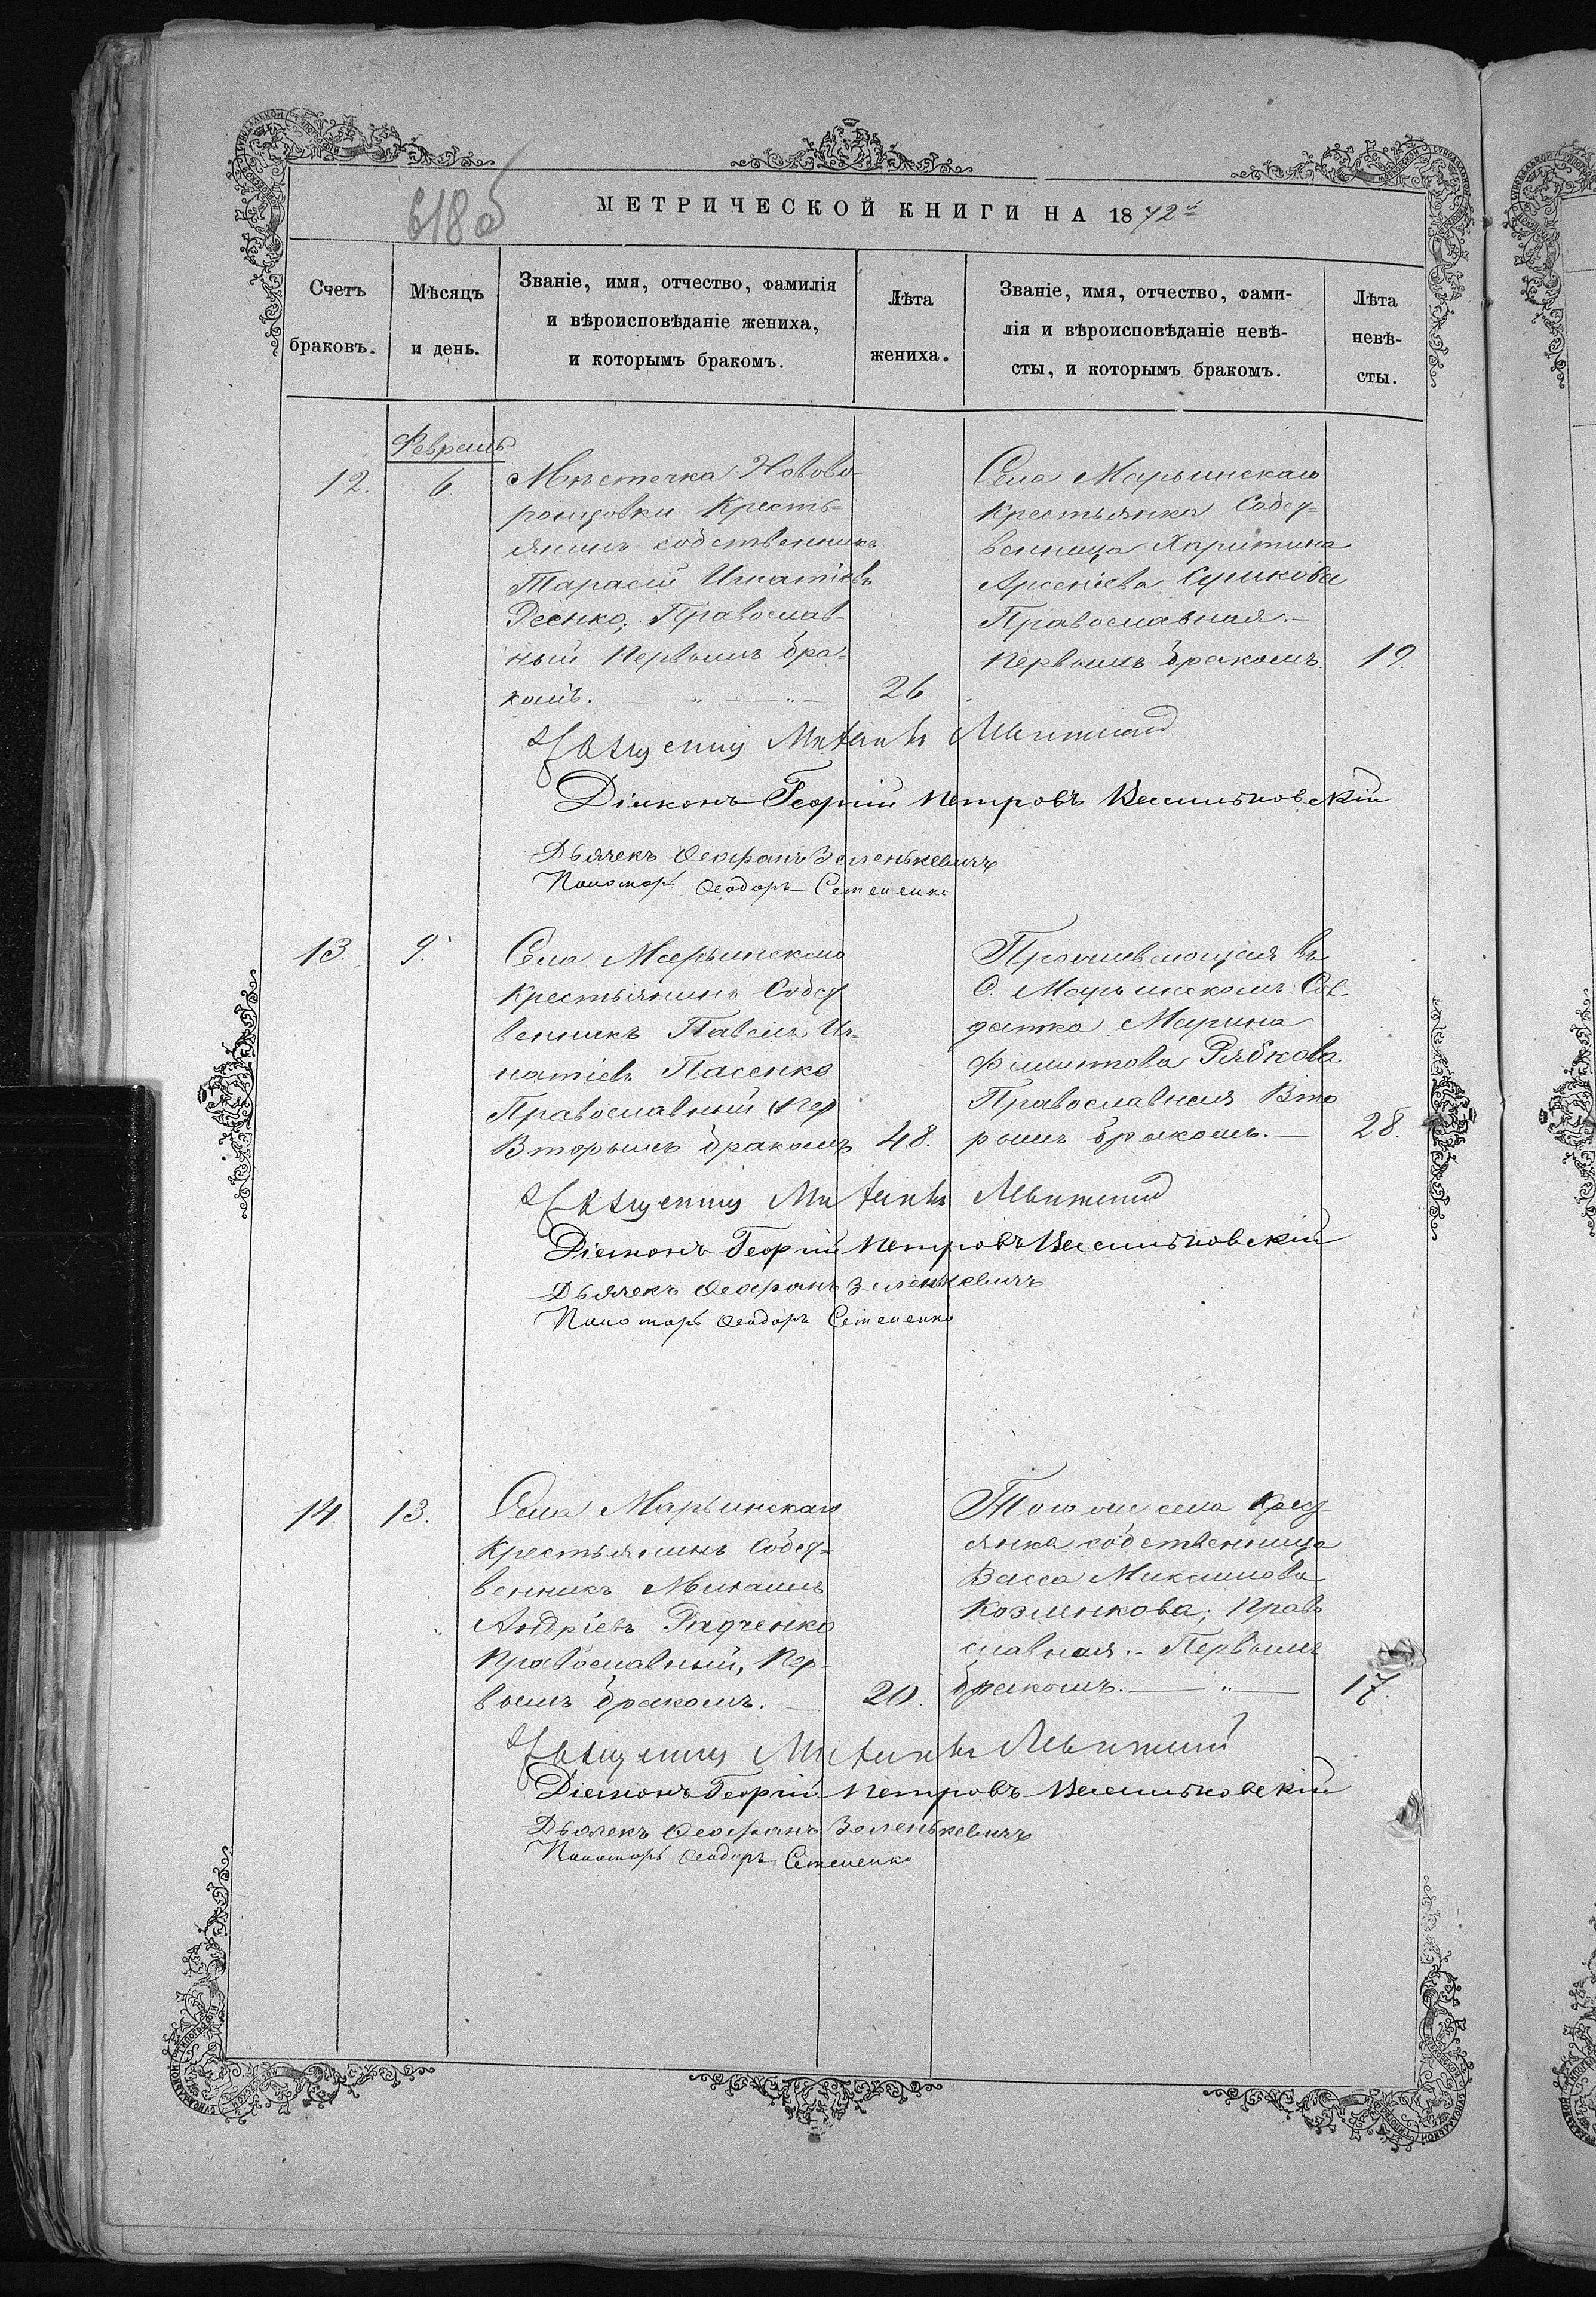 618 об
МЕТРИЧЕСКОЙ КНИГИ НА 1872й
Счетъ браковъ.
Мѣсяцъ и день.
Званіе, имя, отчество, фамилія
и вѣроисповѣданіе жениха,
и которымъ бракомъ.
Лѣта
жениха.
Званіе, имя, отчество, фами-
лія и вѣроисповѣданіе невѣ-
сты, и которымъ бракомъ.
Лѣта
невѣ-
сты.
Февраль
12.
6
Мѣстечка Ново
ронцовки Кресть=
янинъ собственникъ
Тарасій Игнатіевъ
Православ-
ный Первымъ бра=
комъ.
26
Села Марьинскаго
Крестьянка Собст=
венница Харитина
Арсеніева
Православная.-
Первымъ бракомъ.
19.
Священникъ Михаилъ Левитскій
Діаконъ Георгій Петровъ Васильковскій
Дьячекъ Ѳеофанъ Зеленькевичъ
Пономарь Ѳеодоръ Семененко
13.
9.
Села Марьинскаго
Крестьянинъ Собст
венникъ Павелъ Иг-
натіевъ Пасенко
Православный Пер
Вторымъ бракомъ
48.
Проживающая въ
С. Марьинскомъ Сол-
датка Марина
Филиппова Рябкова
Православная Вто
рымъ бракомъ.-
28.
Священникъ Михаилъ Левитскій
Діаконъ Георгій Петровъ Васильковскій
Дьячекъ Ѳеофанъ Зеленькевичъ
Пономарь Ѳеодоръ Семененко
14.
13.
Села Марьинскаго
Крестьянинъ Собст=
венникъ Михаилъ
Андріевъ Радченко
Православный, Пер-
вымъ бракомъ.
20.
Того же села Крест
янка собственница
Васса Максимова
Козленкова; Право
славная.- Первымъ
бракомъ.
17.
Священникъ Михаилъ Левитскій
Діаконъ Георгій Петровъ Васильковскій
Дьячекъ Ѳеофанъ Зеленькевичъ
Пономарь Ѳеодоръ Семененко